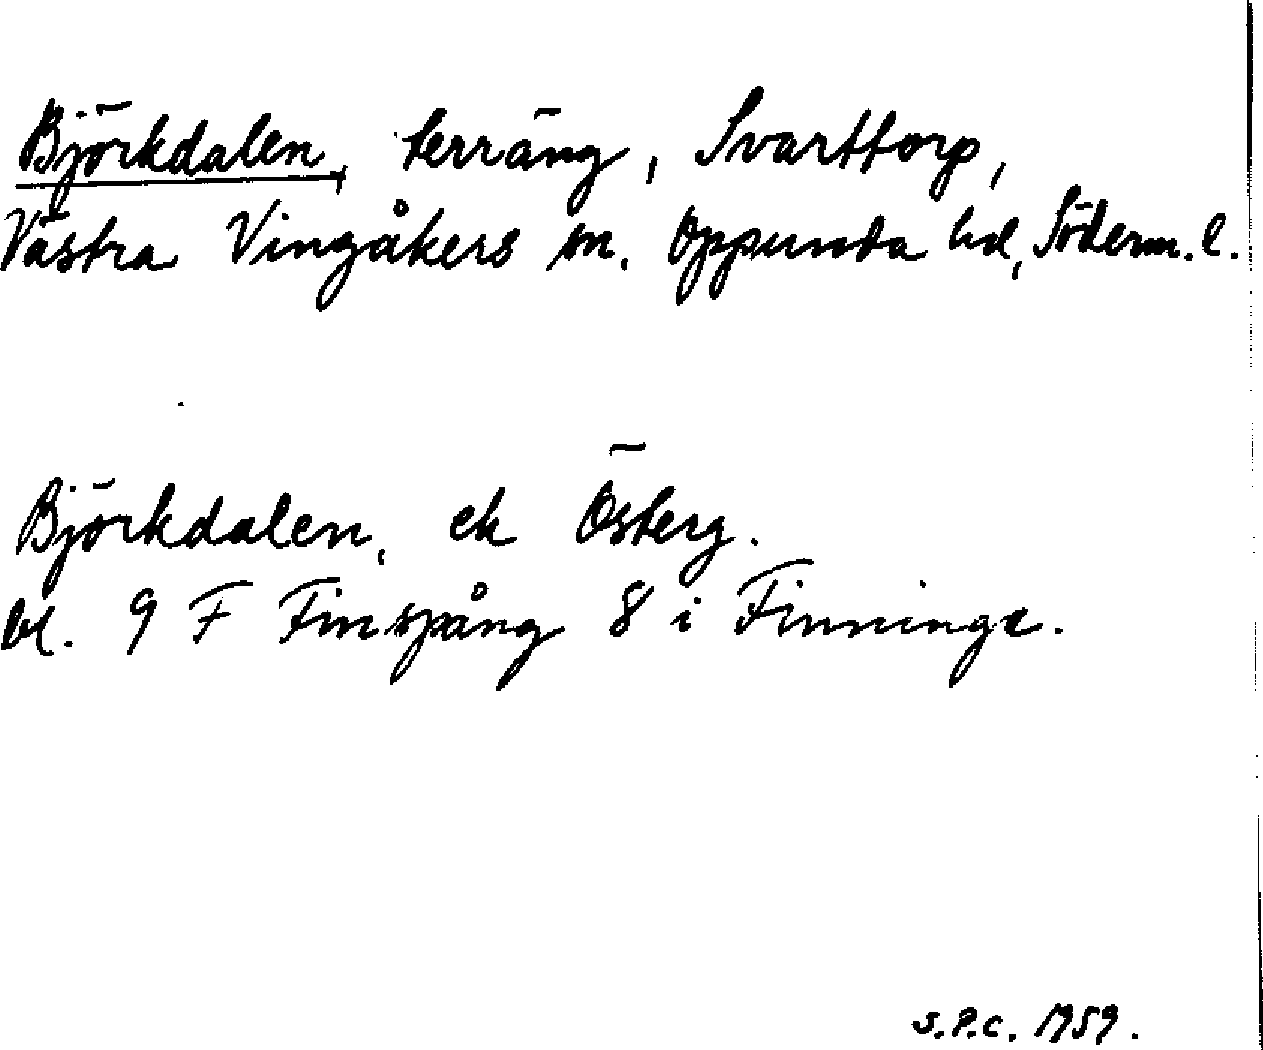 Björkdalen, terräng, Svarttorp,
Västra Vingåkers sn. Oppunda hd, Söderm. l.
Björkdalen, ek Österg.
bl. 9 F Finspång 8 i Finninge.
S.P.C. 1959.